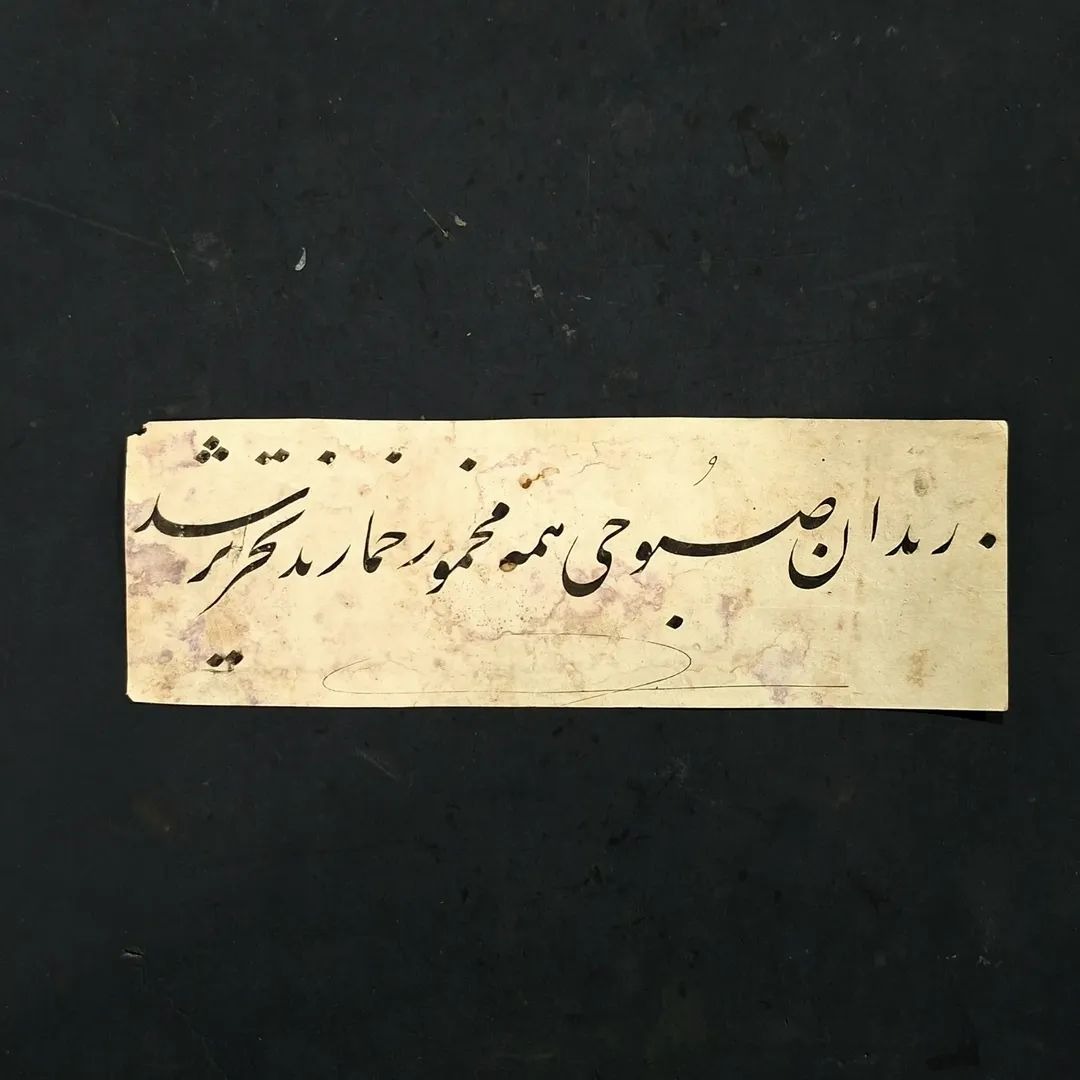 رندان صبوحی همه مخمور خمارند تحریر شد